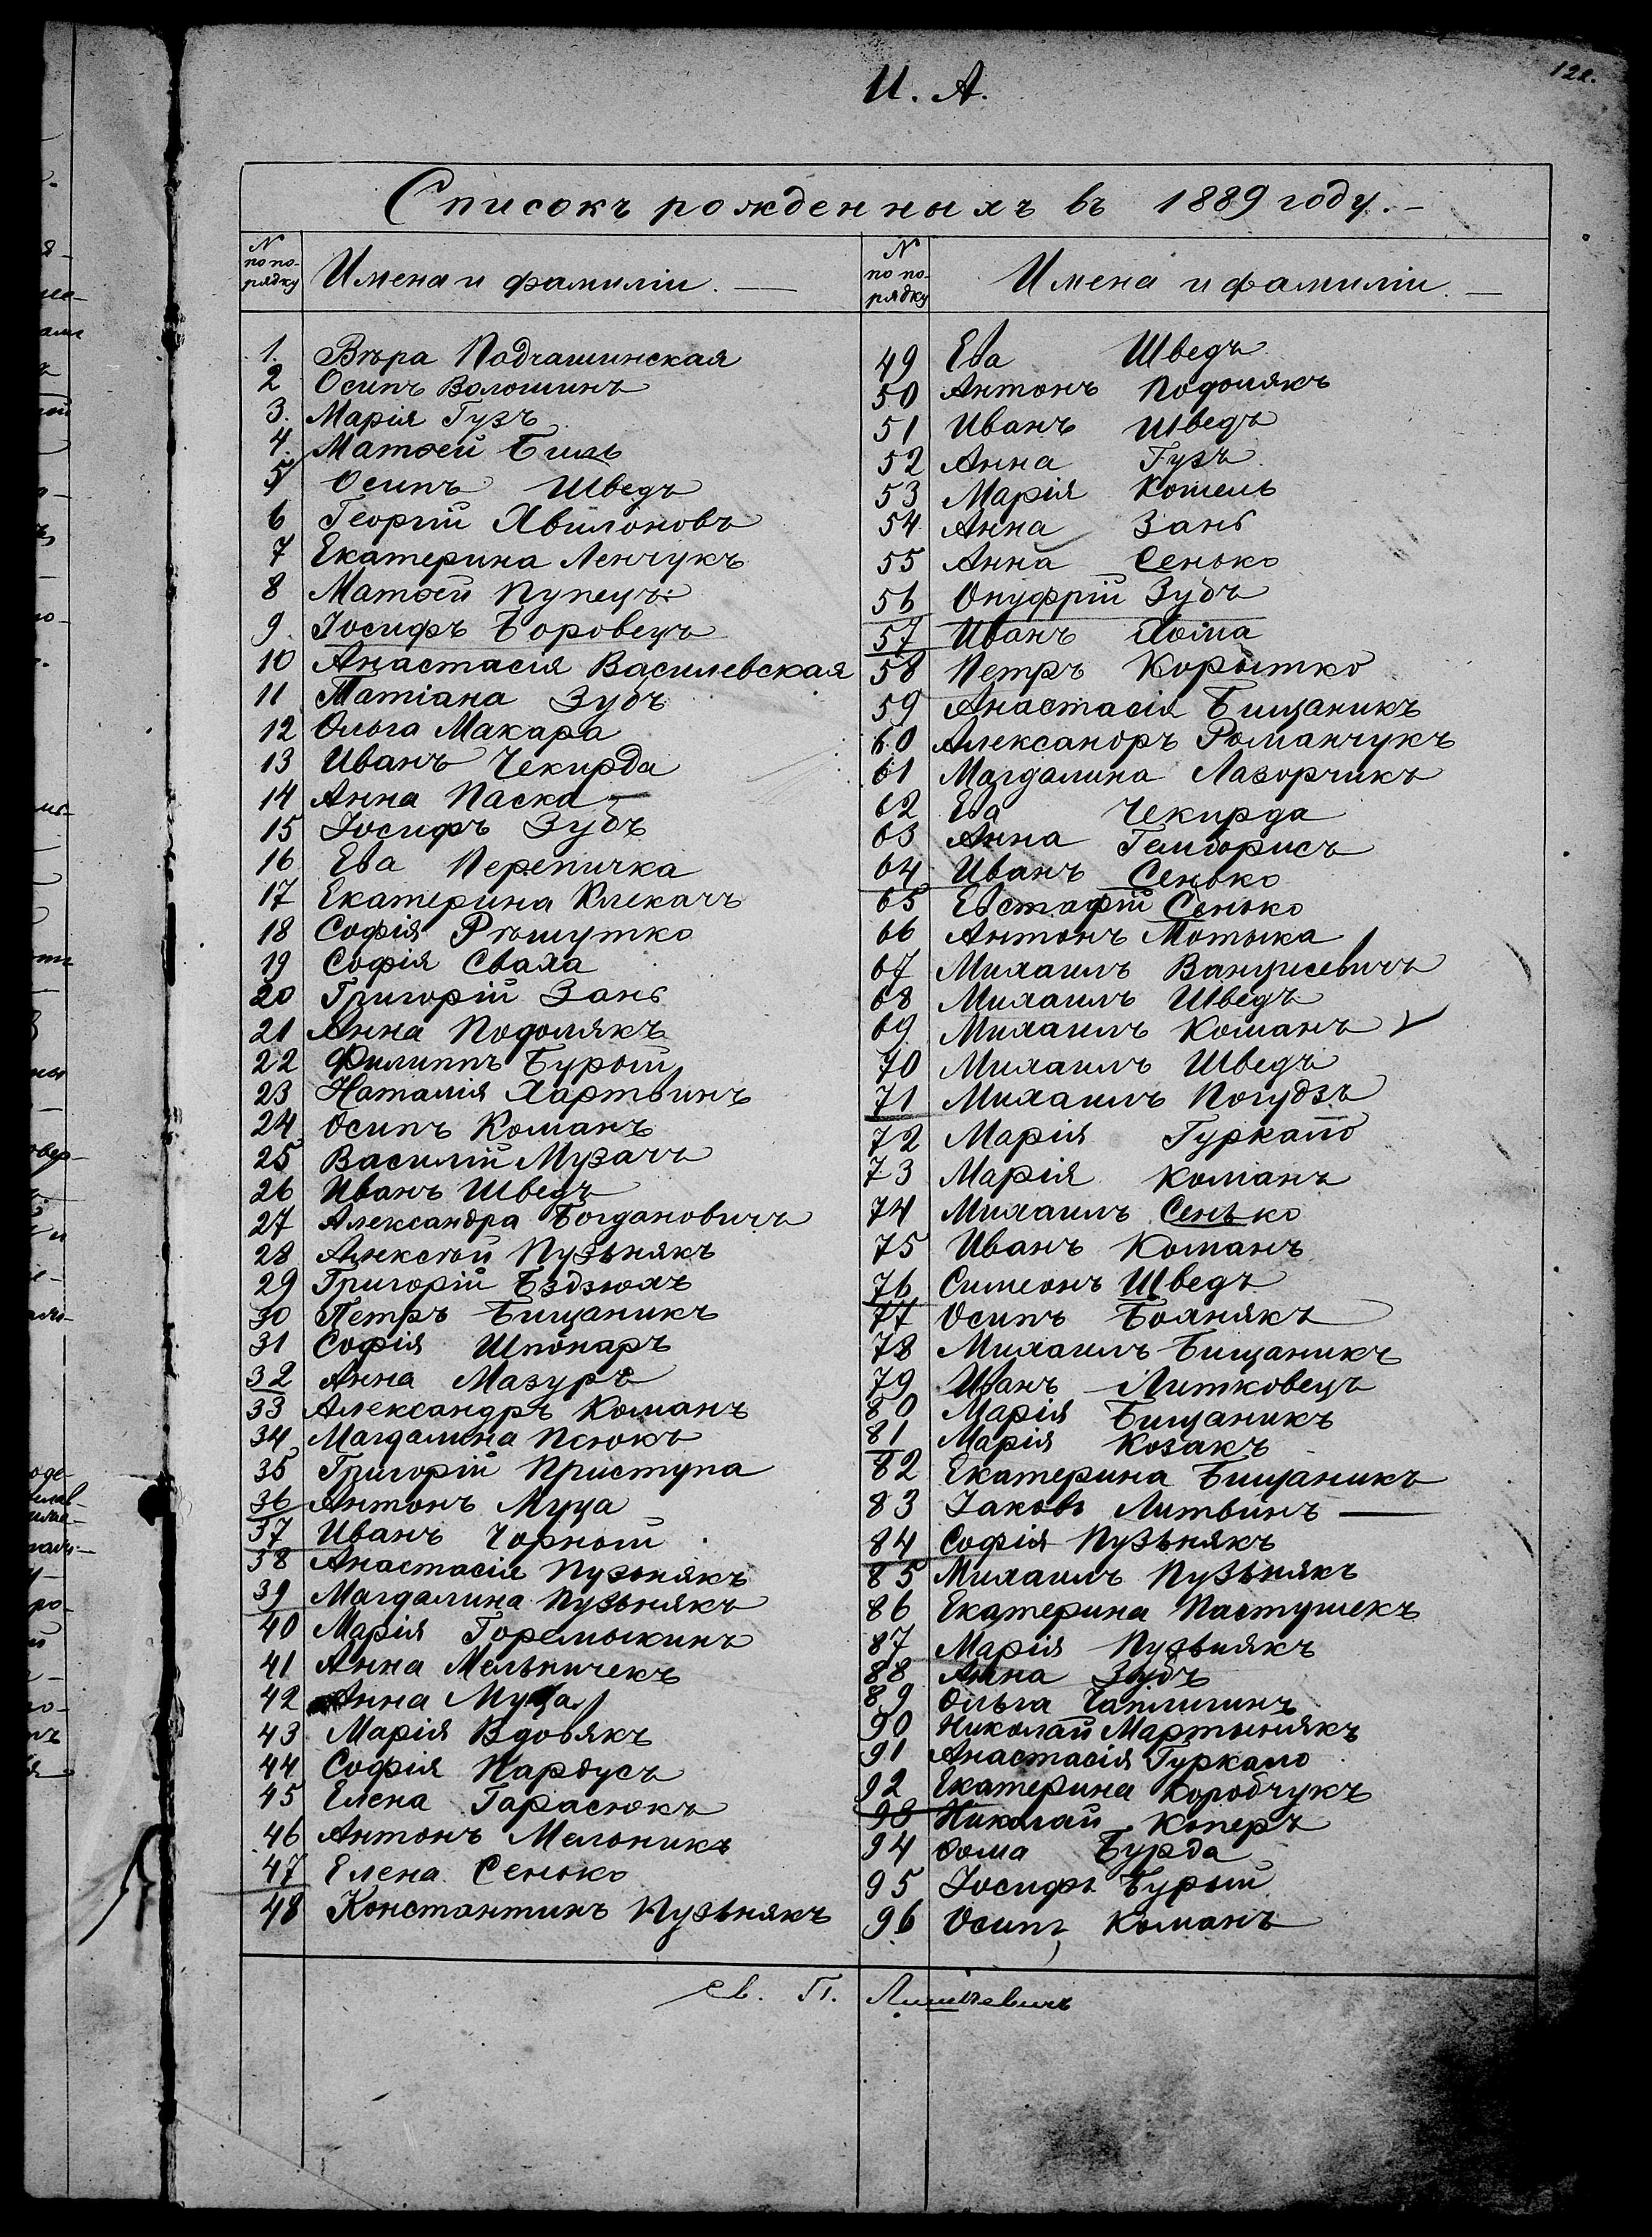 И. А.
122.
Списокъ рожденныхъ въ 1889 году.—
N по по-рядку Имена и фамиліи. —
1. Вѣра Подчашинская
2 Осипъ Волошинъ
3. Марія Гузъ
4. Матѳей Биль
5 Осипъ Шведъ
6 Георгій Хвилоновъ
7 Екатерина Ленчукъ
8 Матѳей Пупецъ
9. Іосифъ Боровецъ
10 Анастасія Василевская
11 Татіана Зубъ
12 Ольга Макара
13 Иванъ Чекирда
14 Анна Паска —
15 Іосифъ Зубъ
16 Ева Перепичка
17 Екатерина Клекачъ
18 Софія Рѣшутко
19 Софія Сваха
20 Григорій Зань
21 Анна Подолякъ
22 Филиппъ Бурый
23 Наталія Хартвинъ
24 Осипъ Команъ
25 Василій Музачъ
26 Иванъ Шведъ
27 Александра Богдановичъ
28 Алексѣй Пузьнякъ
29 Григорій Бэдзюхъ
30 Петръ Бищаникъ
31 Софія Шпонаръ
32 Анна Мазуръ
33 Александръ Команъ
34 Магдалина Псюкъ
35 Григорій Приступа
36 Антонъ Муца
37 Иванъ Чорный
38 Анастасія Пузьнякъ
39 Магдалина Пузьнякъ
40 Марія Горемыкинъ
41 Анна Мельничекъ
42 Анна Муца
43 Марія Вдовякъ
44 Софія Нардусъ
45 Елена Гарасюкъ
46 Антонъ Мельникъ
47 Елена Сенько
48 Константинъ Пузьнякъ
N по по-рядку Имена и фамиліи. —
49 Ева Шведъ
50 Антонъ Подолякъ
51 Иванъ Шведъ
52 Анна Гузъ
53 Марія Кошель
54 Анна Зань
55 Анна Сенько
56 Онуфрій Зубъ
57 Иванъ Хома
58 Петръ Корытко
59 Анастасія Бищаникъ
60 Александръ Романчукъ
61 Магдалина Лазорчикъ
62 Ева Чекирда
63 Анна
64 Иванъ Сенько
65 Евстафій Сенько
66 Антонъ Мотыка
67 Михаилъ Ванцисевичъ
68 Михаилъ Шведъ
69 Михаилъ Команъ
70 Михаилъ Шведъ
71 Михаилъ Погудзъ
72 Марія Гуркало
73 Марія Команъ
74 Михаилъ Сенько
75 Иванъ Команъ
76 Симеонъ Шведъ
77 Осипъ Болнякъ
78 Михаилъ Бищаникъ
79 Иванъ Литковецъ
80 Марія Бищаникъ
81 Марія Козакъ
82 Екатерина Бищаникъ
83 Іаковъ Литвинъ —
84 Софія Пузьнякъ
85 Михаилъ Пузьнякъ
86 Екатерина Пастушекъ
87 Марія Пузьнякъ
88 Анна Зубъ
89 Ольга Чаплигинъ
90 Николай Мартынякъ
91 Анастасія Гуркало
92 Екатерина Коробчукъ
93 Николай Коперъ
94 Ѳома Бурда
95 Іосифъ Бурый
96 Осипъ Команъ
св. П.